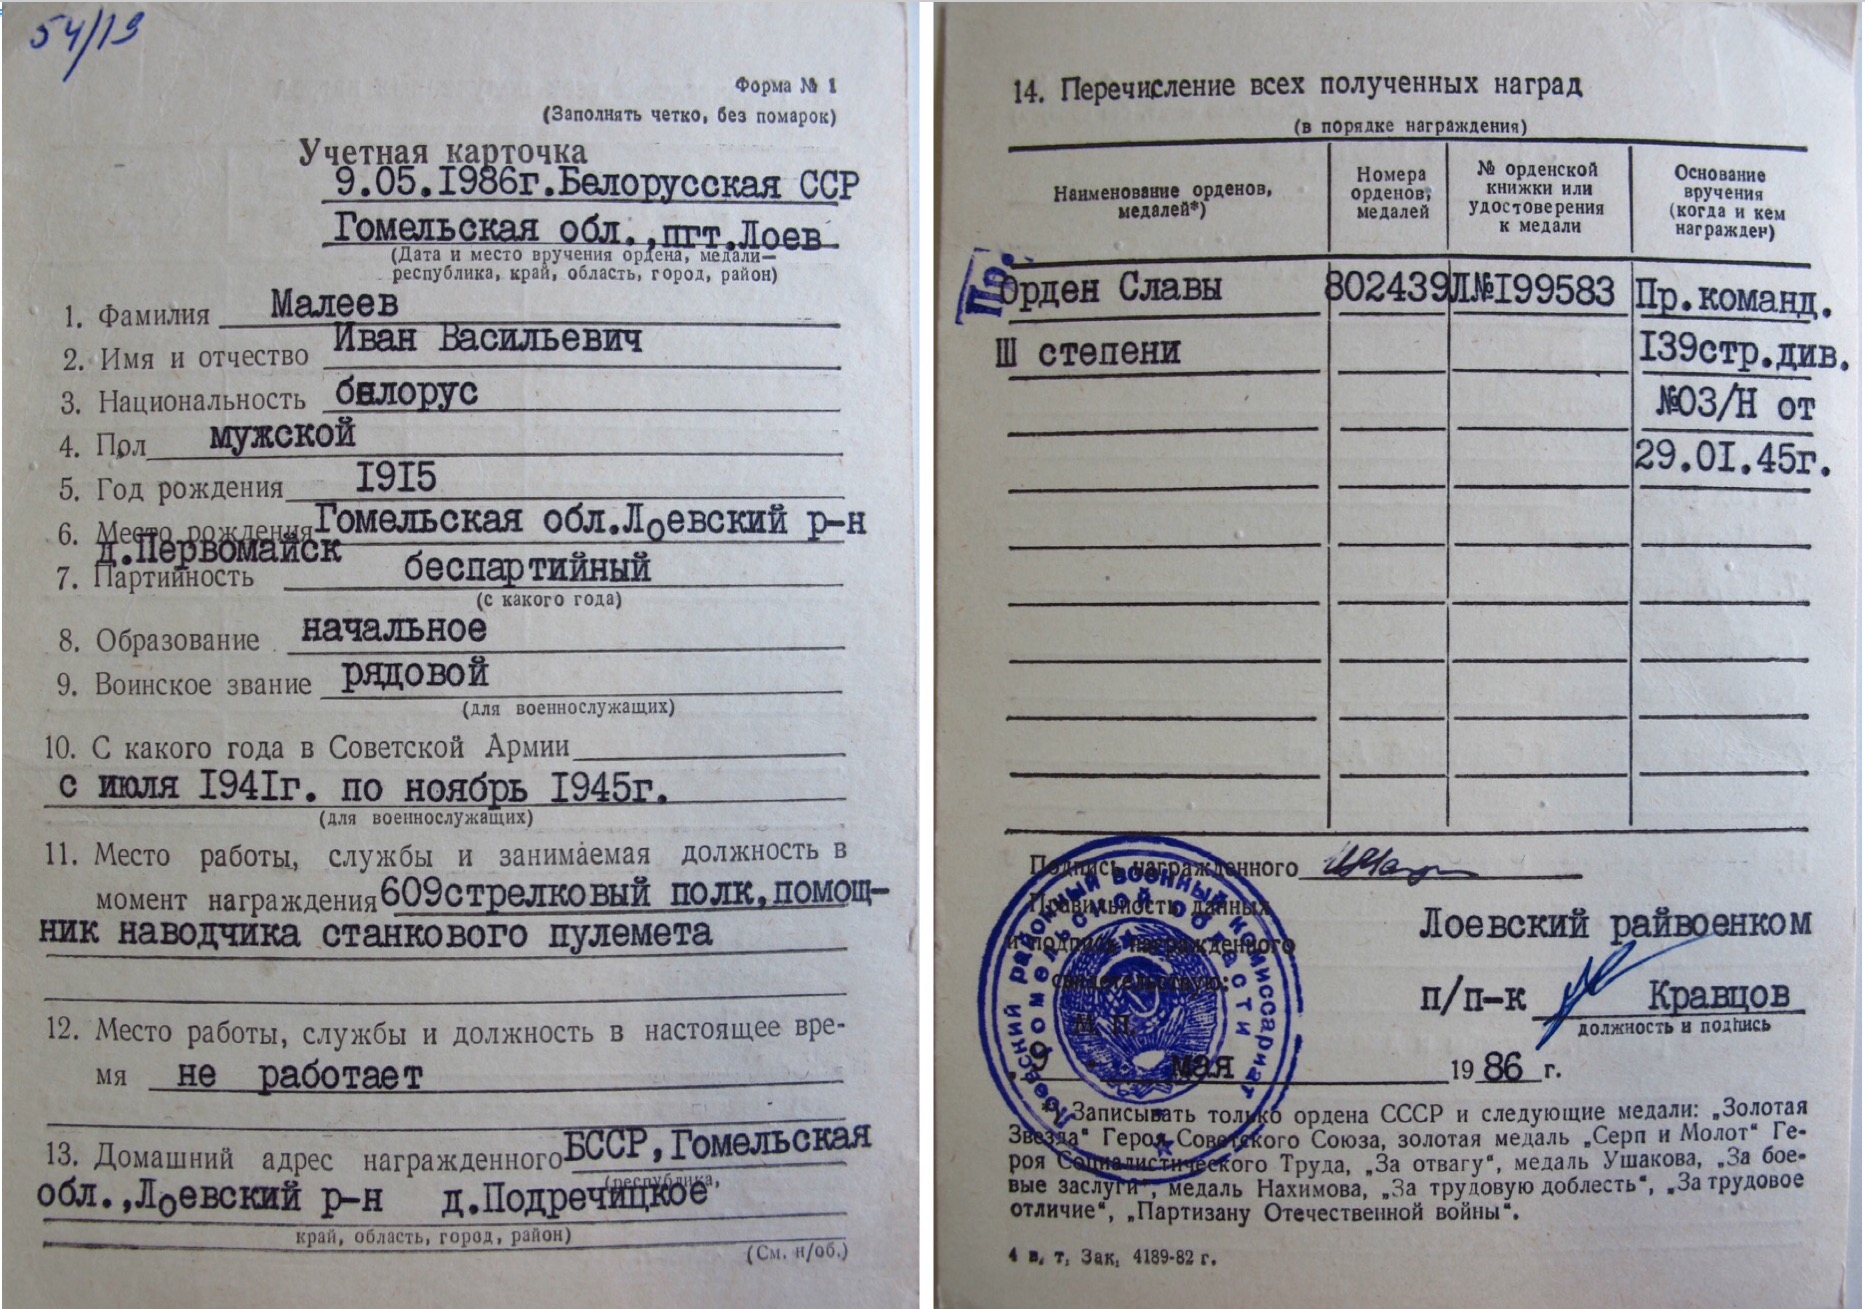 54/19
Форма № 1
(Заполнять четко, без помарок)
Учетная карточка
9.05.I986г.Белорусская ССР
Гомельская обл.,пгт.Лоев
(Дата и место вручения ордена, медали—
республика, край, область, город, район)
1. Фамилия Малеев
2. Имя и отчество Иван Васильевич
3. Национальность белорус
4. Пол мужской
5. Год рождения I9I5
6. Место рождения Гомельская обл.Лоевский р-н
д.Первомайск
7. Партийность беспартийный
(с какого года)
8. Образование начальное
9. Воинское звание рядовой
(для военнослужащих)
10. С какого года в Советской Армии
с июля I94Iг. по ноябрь I945г.
(для военнослужащих)
11. Место работы, службы и занимаемая должность в
момент награждения 609стрелковый полк,помощ-
ник наводчика станкового пулемета
12. Место работы, службы и должность в настоящее вре-
мя не работает
13. Домашний адрес награжденного БССР,Гомельская
(республика,
обл.,Лоевский р-н д.Подречицкое
край, область, город, район)
(См. н/об.)
14. Перечисление всех полученных наград
(в порядке награждения)
Наименование орденов, медалей*)
Номера орденов, медалей
№ орденской книжки или удостоверения к медали
Основание вручения (когда и кем награжден)
Пр.
Орден Славы 802439 Л№I99583 Пр.команд.
III степени I39стр.див.
№03/Н от
29.0I.45г.
Подпись награжденного
Правильность данных
и подпись награжденного
свидетельствую:
М. П.
Лоевский районный военный комиссариат
Гомельской области
Лоевский райвоенком
п/п-к Кравцов
должность и подпись
„9 мая 1986 г.
*) Записывать только ордена СССР и следующие медали: „Золотая
Звезда“ Героя Советского Союза, золотая медаль „Серп и Молот“ Ге-
роя Социалистического Труда, „За отвагу“, медаль Ушакова, „За бое-
вые заслуги“, медаль Нахимова, „За трудовую доблесть“, „За трудовое
отличие“, „Партизану Отечественной войны“.
4 в. т. Зак. 4189-82 г.